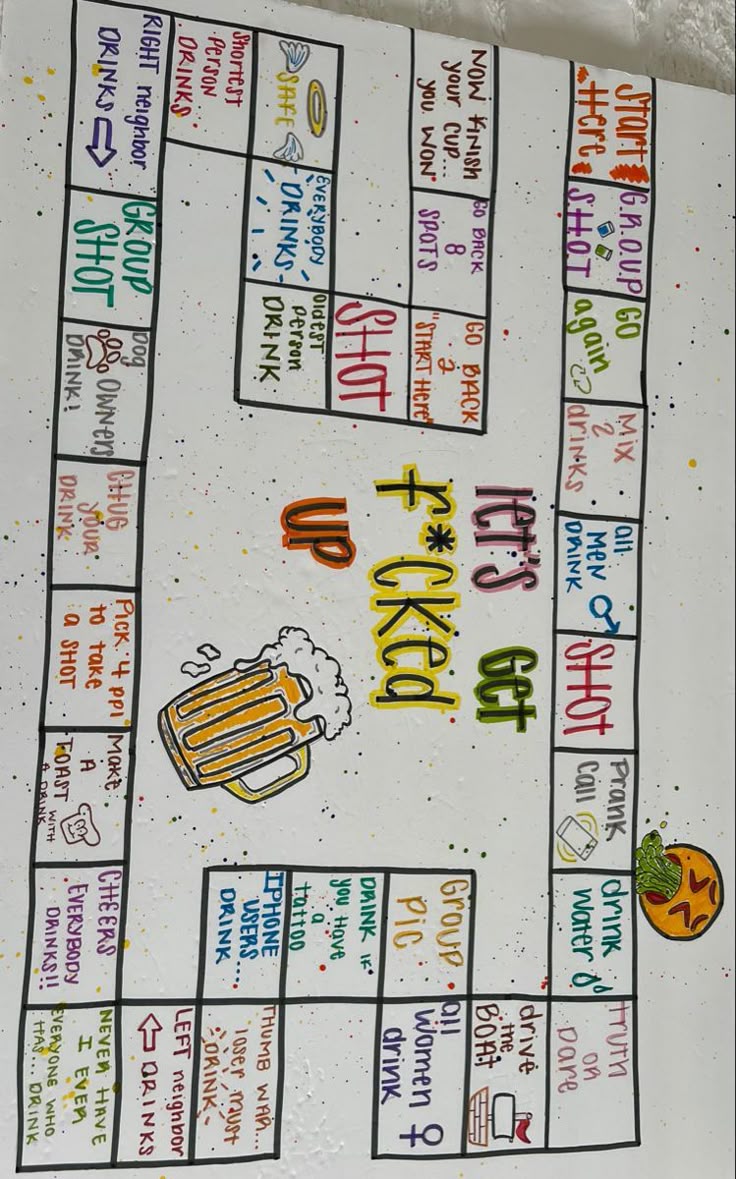 Start
Here
G.R.O.U.P
S.H.O.T
GO
again
Mix
2
drinks
all
MEN
DRINK
SHOT
Prank
Call
drink
water
truth
or
Dare
drive
the
BOAT
all
women
drink
Group
Pic
DRINK IF
you Have
a
tattoo
IPHONE
USERS...
DRINK
THUMB WAR...
loser must
DRINK
LEFT neighbor
DRINKS
NEVER HAVE
I EVER
EVERYONE WHO
HAS... DRINK
CHEERS
EVERYBODY
DRINKS!!
Make
A
TOAST WITH
A DRINK
Pick 4 ppl
to take
a SHOT
CHUG
your
DRINK
Dog
OWNERS
DRINK!
GROUP
SHOT
RIGHT neighbor
DRINKS
Shortest
Person
DRINKS
SAFE
EVERYBODY
DRINKS
Oldest
Person
DRINK
SHOT
GO BACK
2
"START HERE"
GO BACK
8
SPOTS
NOW FINISH
your CUP...
you WON
LET'S GET
F*CKED
UP